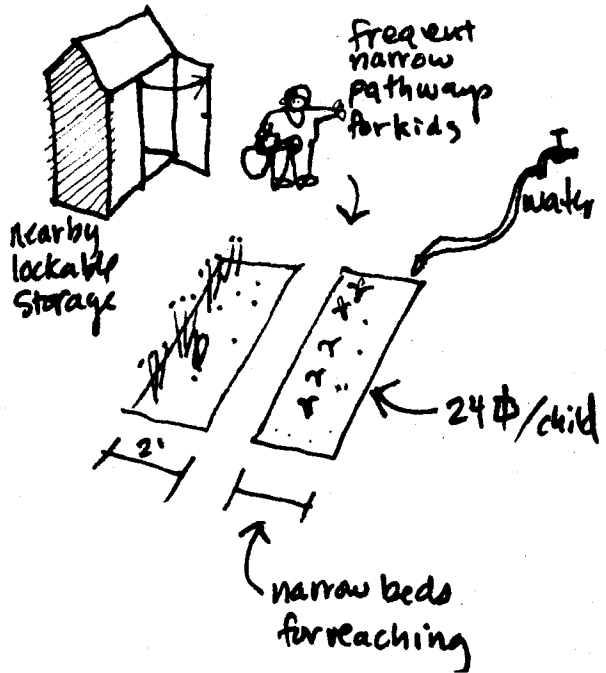 frequent
narrow
pathways
for kids
water
nearby
lockable
storage
24⏍/child
2'
narrow beds
for reaching